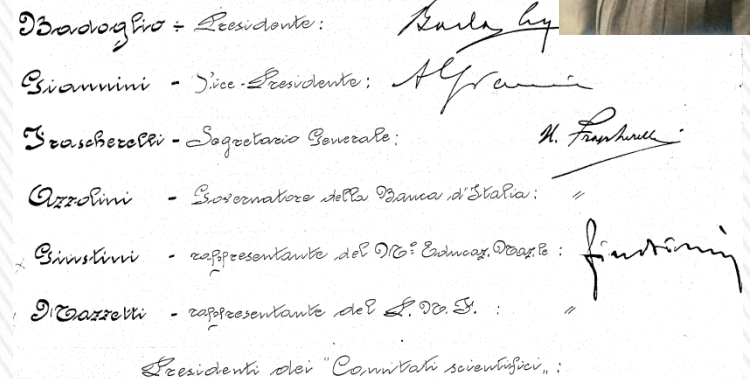 Badoglio - Presidente: Badoglio
Giannini - Vice-Presidente: A Giannini
Frascherelli - Segretario Generale: U. Frascherelli
Azzolini - Governatore della Banca d'Italia: "
Giustini - rappresentante del Mº Educaz. Naz.le: Giustini
Mazzetti - rappresentante del P.N.F.: "
Presidenti dei "Comitati scientifici":